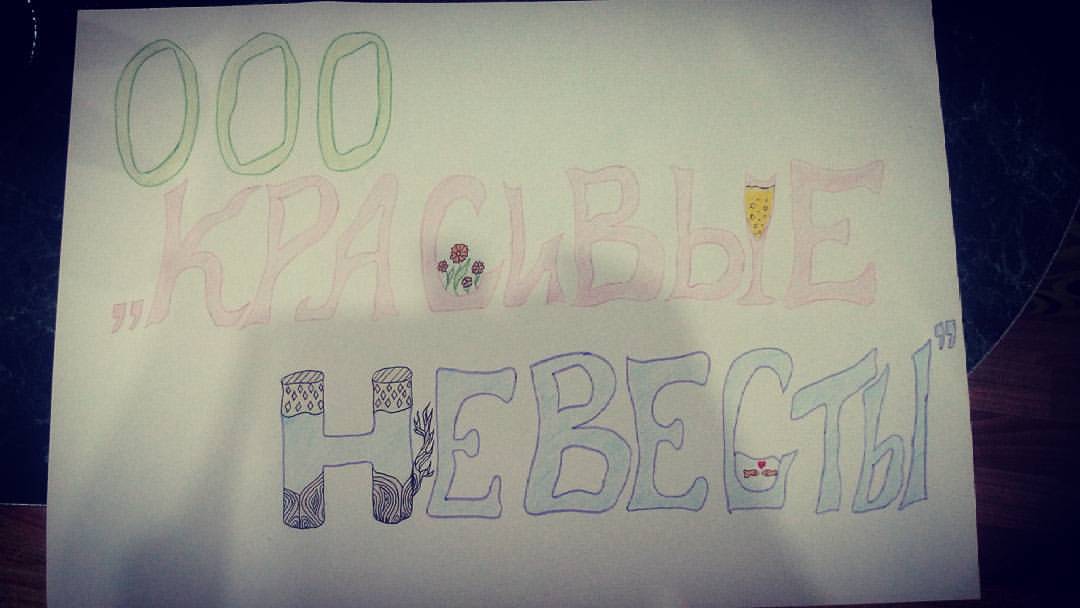 ООО
„КРАСИВЫЕ
НЕВЕСТЫ"